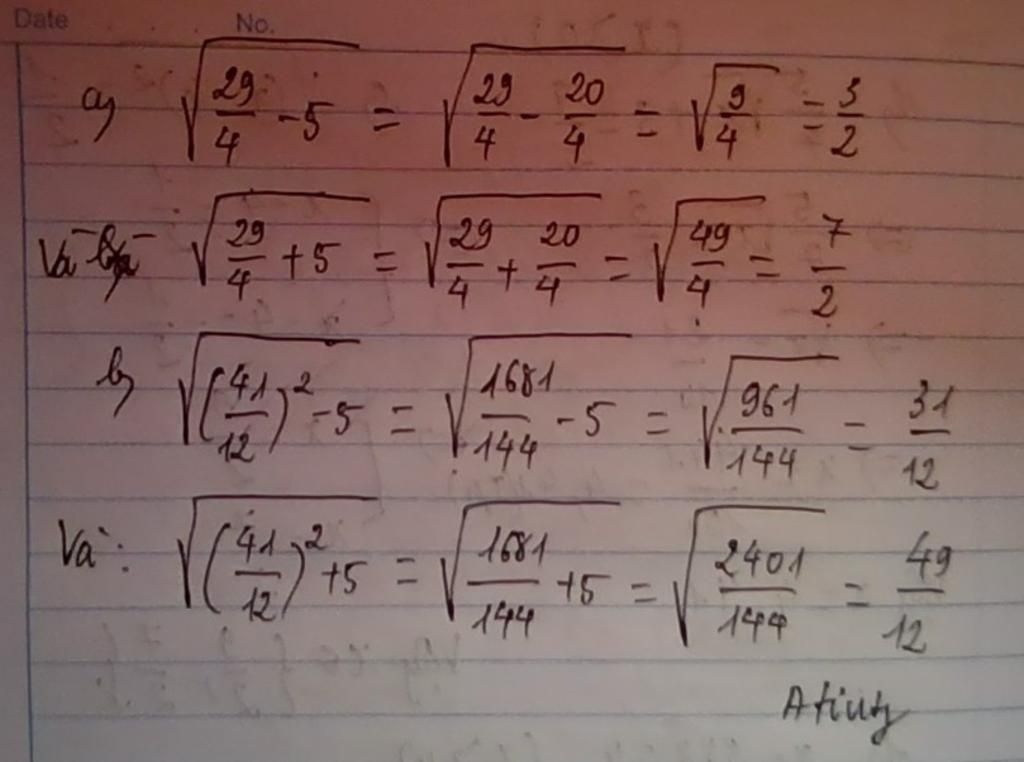 Date No.
a) √(29/4 - 5) = √(29/4 - 20/4) = √(9/4) = 3/2
Và √(29/4 + 5) = √(29/4 + 20/4) = √(49/4) = 7/2
b) √((41/12)² - 5) = √(1681/144 - 5) = √(961/144) = 31/12
Và : √((41/12)² + 5) = √(1681/144 + 5) = √(2401/144) = 49/12